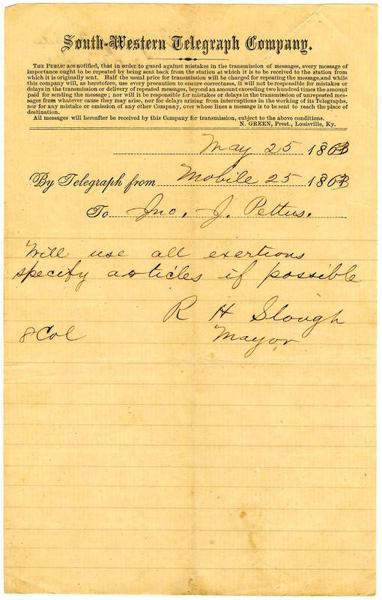 South-Western Telegraph Company.
THE PUBLIC are notified, that in order to guard against mistakes in the transmission of messages, every message of
importance ought to be repeated by being sent back from the station at which it is to be received to the station from
which it is originally sent. Half the usual price for transmission will be charged for repeating the message, and while
this company will, as heretofore, use every precaution to ensure correctness, it will not be responsible for mistakes or
delays in the transmission or delivery of repeated messages, beyond an amount exceeding two hundred times the amount
paid for sending the message; nor will it be responsible for mistakes or delays in the transmission of unrepeated mes-
sages from whatever cause they may arise, nor for delays arising from interruptions in the working of its Telegraphs,
nor for any mistake or omission of any other Company, over whose lines a message is to be sent to reach the place of
destination.
All messages will hereafter be received by this Company for transmission, subject to the above conditions.
N. GREEN, Prest., Louisville, Ky.
May 25 1863
By Telegraph from Mobile 25 1863
To Jno. J. Pettus.
Will use all exertions
specify articles if possible
R H Slough
8 Col Mayor